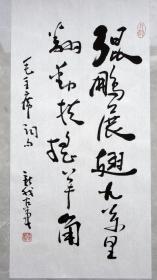 鲲鹏展翅九万里
翻动扶摇羊角
毛主席词句